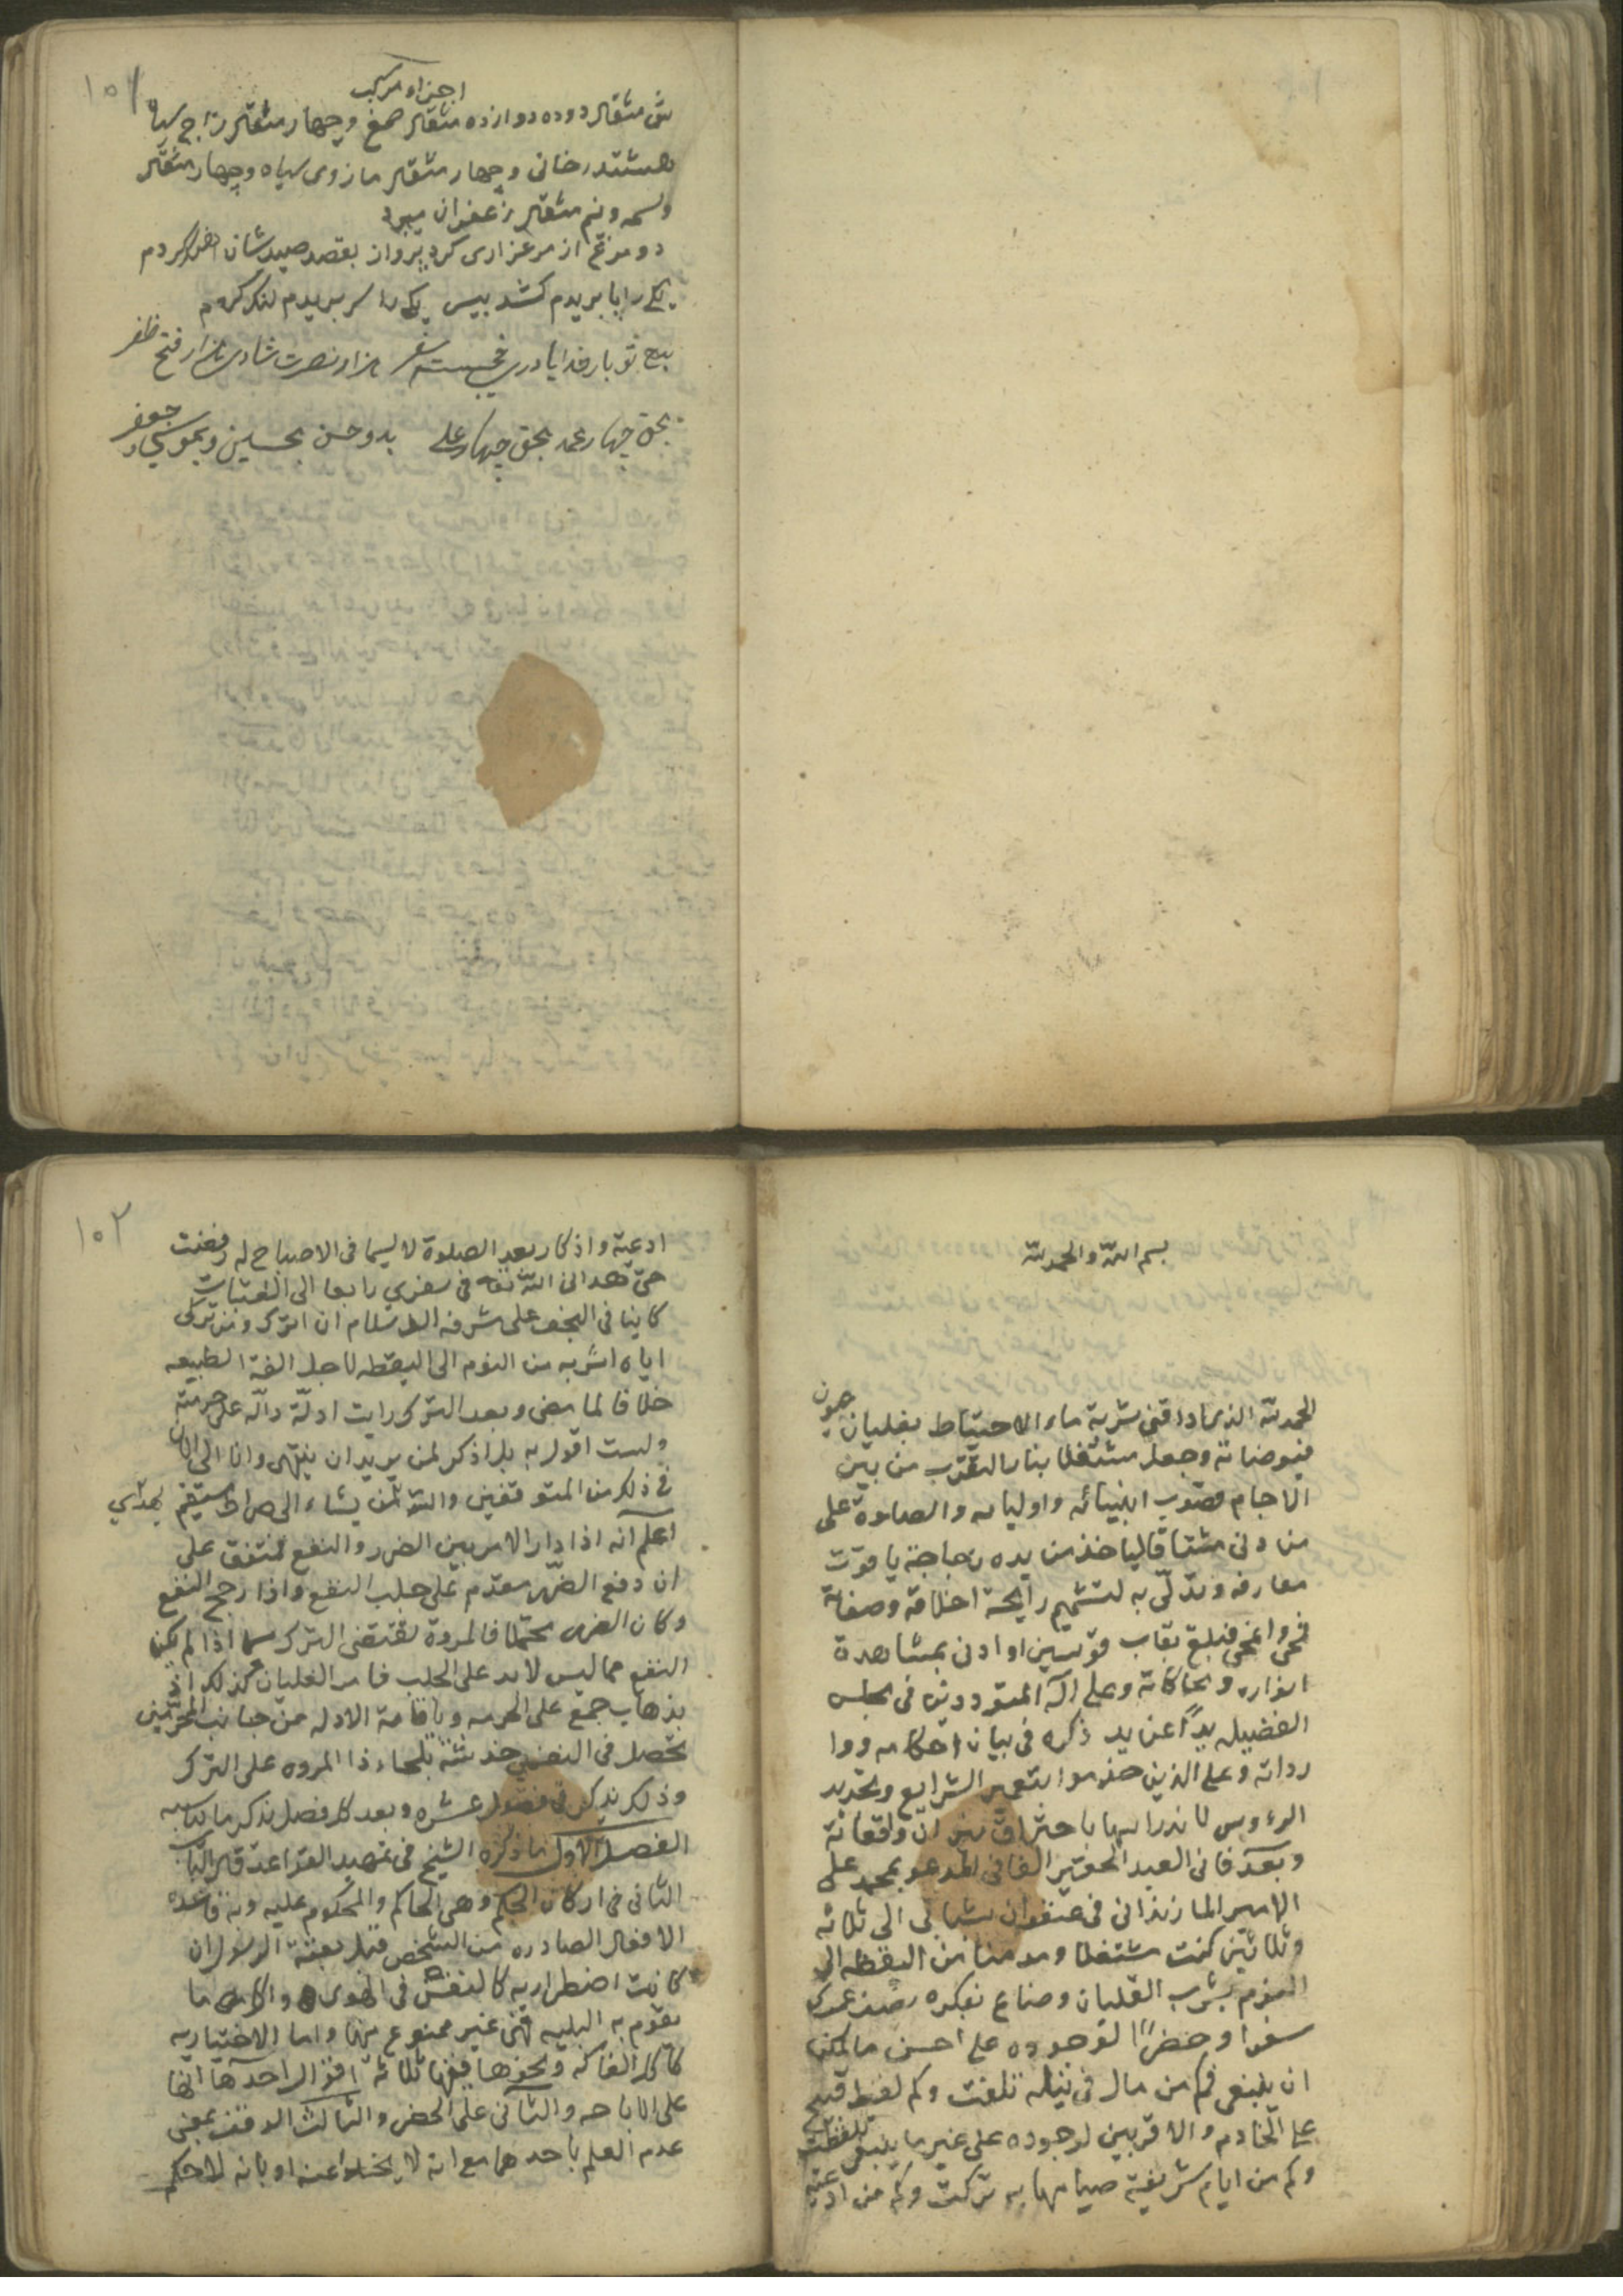 ۱۰۱
اجزاء مرکب
شش مثقال دوده دوازده مثقال صمغ و چهار مثقال زاج سیاه
هشتدرخانی و چهار مثقال مازوی سیاه و چهار مثقال
وسمه و نیم مثقال زعفران میبرد
دو مرغم از مرغزاری کرد پرواز بقصد صیدشان
یکی را پا بریدم کشد بیس یکی را سر بریدم لنک کردم
بیع تو بار خدایا درین خجسته سفر هزار نصرت شادی هزار فتح ظفر
بحق چهار محمد بحق چهار علی بدو حسن بحسین و بموسی جعفر
بسم الله والحمد لله
الحمد لله الذی اذاقنی شربة ماء الاحتیاط بغلیان عیون
فیوضاته وجعل مشتغلا بنار التقرب من بین
الاجام قلوب انبیائه واولیائه والصلوة علی
من دنی مشتاقا لیاخذ من یده زجاجة یاقوت
معارفه وتدلّی به لتشمیم رایحة اخلاقه وصفاته
فبلغ بقاب قوسین او ادنی بمشاهدة
انواره ومحاکاته وعلی آله المترددین فی مجلس
الفضیله یداً عن ید ذکره فی بیان احکامه
رواته وعلی الذین خدموا بتعمیر الشرایع وتجدید
الرءوس لا ندراسها باحتراق نیران واقعاته
وبعد فانی العبد الحقیر الفانی المدعو بمحمد علی
الامیر المازندرانی فی عنفوان شبابی الی ثلاثة
وثلاثین کنت مشتغلا ومدمنا من الیقظه الی
النوم بشرب القلیان وضاع بفکره نصف عمری
سفرا وحضرًا لوجوده علی احسن ما یمکن
ان ینبغی فکم من مال فی نیله تلفت وکم لفظ قبیح
علی الخادم والاقربین لوجوده علی غیر ما ینبغی تلفظت
وکم من ایام شریفة صیامها به ترکت وکم من ادعیة
۱۰۲
ادعیة واذکار بعد الصلوة لا سیما فی الاصباح له رفضت
حتی هدانی الله تعه فی سفری رابعا الی العتبات
کاینا فی النجف علی مشرفه السلام ان اترک ومن ترکی
ایاه اشربه من النوم الی الیقظه لاجل الفة الطبیعه
خلافا لما مضی وبعد الترک رایت ادلّة دالّه علی حرمته
ولست اقول به بل اذکر لمن یرید ان ینتهی وانا الی الان
فی ذلک من المتوقفین والله من یشاء الی صراط مستقیم یهدی
اعلم انه اذا دار الامر بین الضرر والنفع فمتفق علی
ان دفع الضرر مقدم علی جلب النفع واذا رجح النفع
وکان الضرر محتملا فالمروة تقتضی الترک سیما اذا لم یکن
النفع مما لیس لابد علی الجلب فامر الغلیان کذلک اذ
بذهاب جمع علی الحرمه وباقامة الادله من جانب المحرّمین
تحصل فی النفس خدشة تلجاء ذا المروه علی الترک
وذلک یذکر فی فصول عشره وبعد کل فصل یذکر ما یناسبه
الفصل الاول ما ذکره الشیخ فی تمهید القواعد قال الباب
الثانی فی ارکان الحکم وهی الحاکم والمحکوم علیه وبه قاعده
الافعال الصادره من الشخص قبل بعثة الرسول ان
کانت اضطراریه کالتنفس فی الهوی واکل ما
تقوم به البلیه فهی غیر ممنوع منها واما الاختیاریه
کاکل الفاکه ونحوها ففیها ثلاثة اقوال احدها انها
علی الاباحه والثانی علی الحضر والثالث الوقف بمعنی
عدم العلم باحدهما مع انه لا یخلو عنه او بانه لا حکم